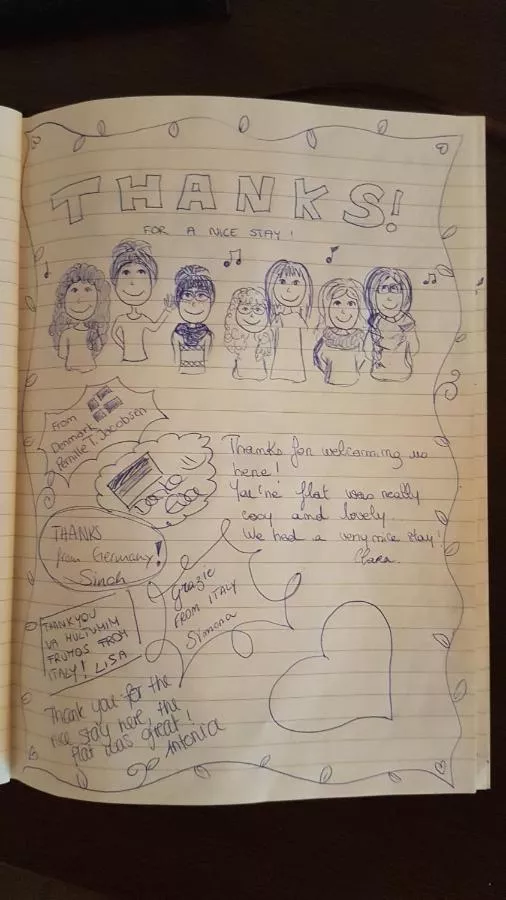 THANKS!
FOR A NICE STAY!
From
Denmark
Pernille T. Jacobsen
Thanks for welcoming us
here!
You're flat was really
cosy and lovely.
We had a very nice stay!
Clara.
THANKS
from Germany!
Sinah
Grazie
FROM ITALY
Simona
THANKYOU
VA MULTUMIM
FRUMOS FROM
ITALY! LISA
Thank you for the
nice stay here, the
flat was great!
Antonia